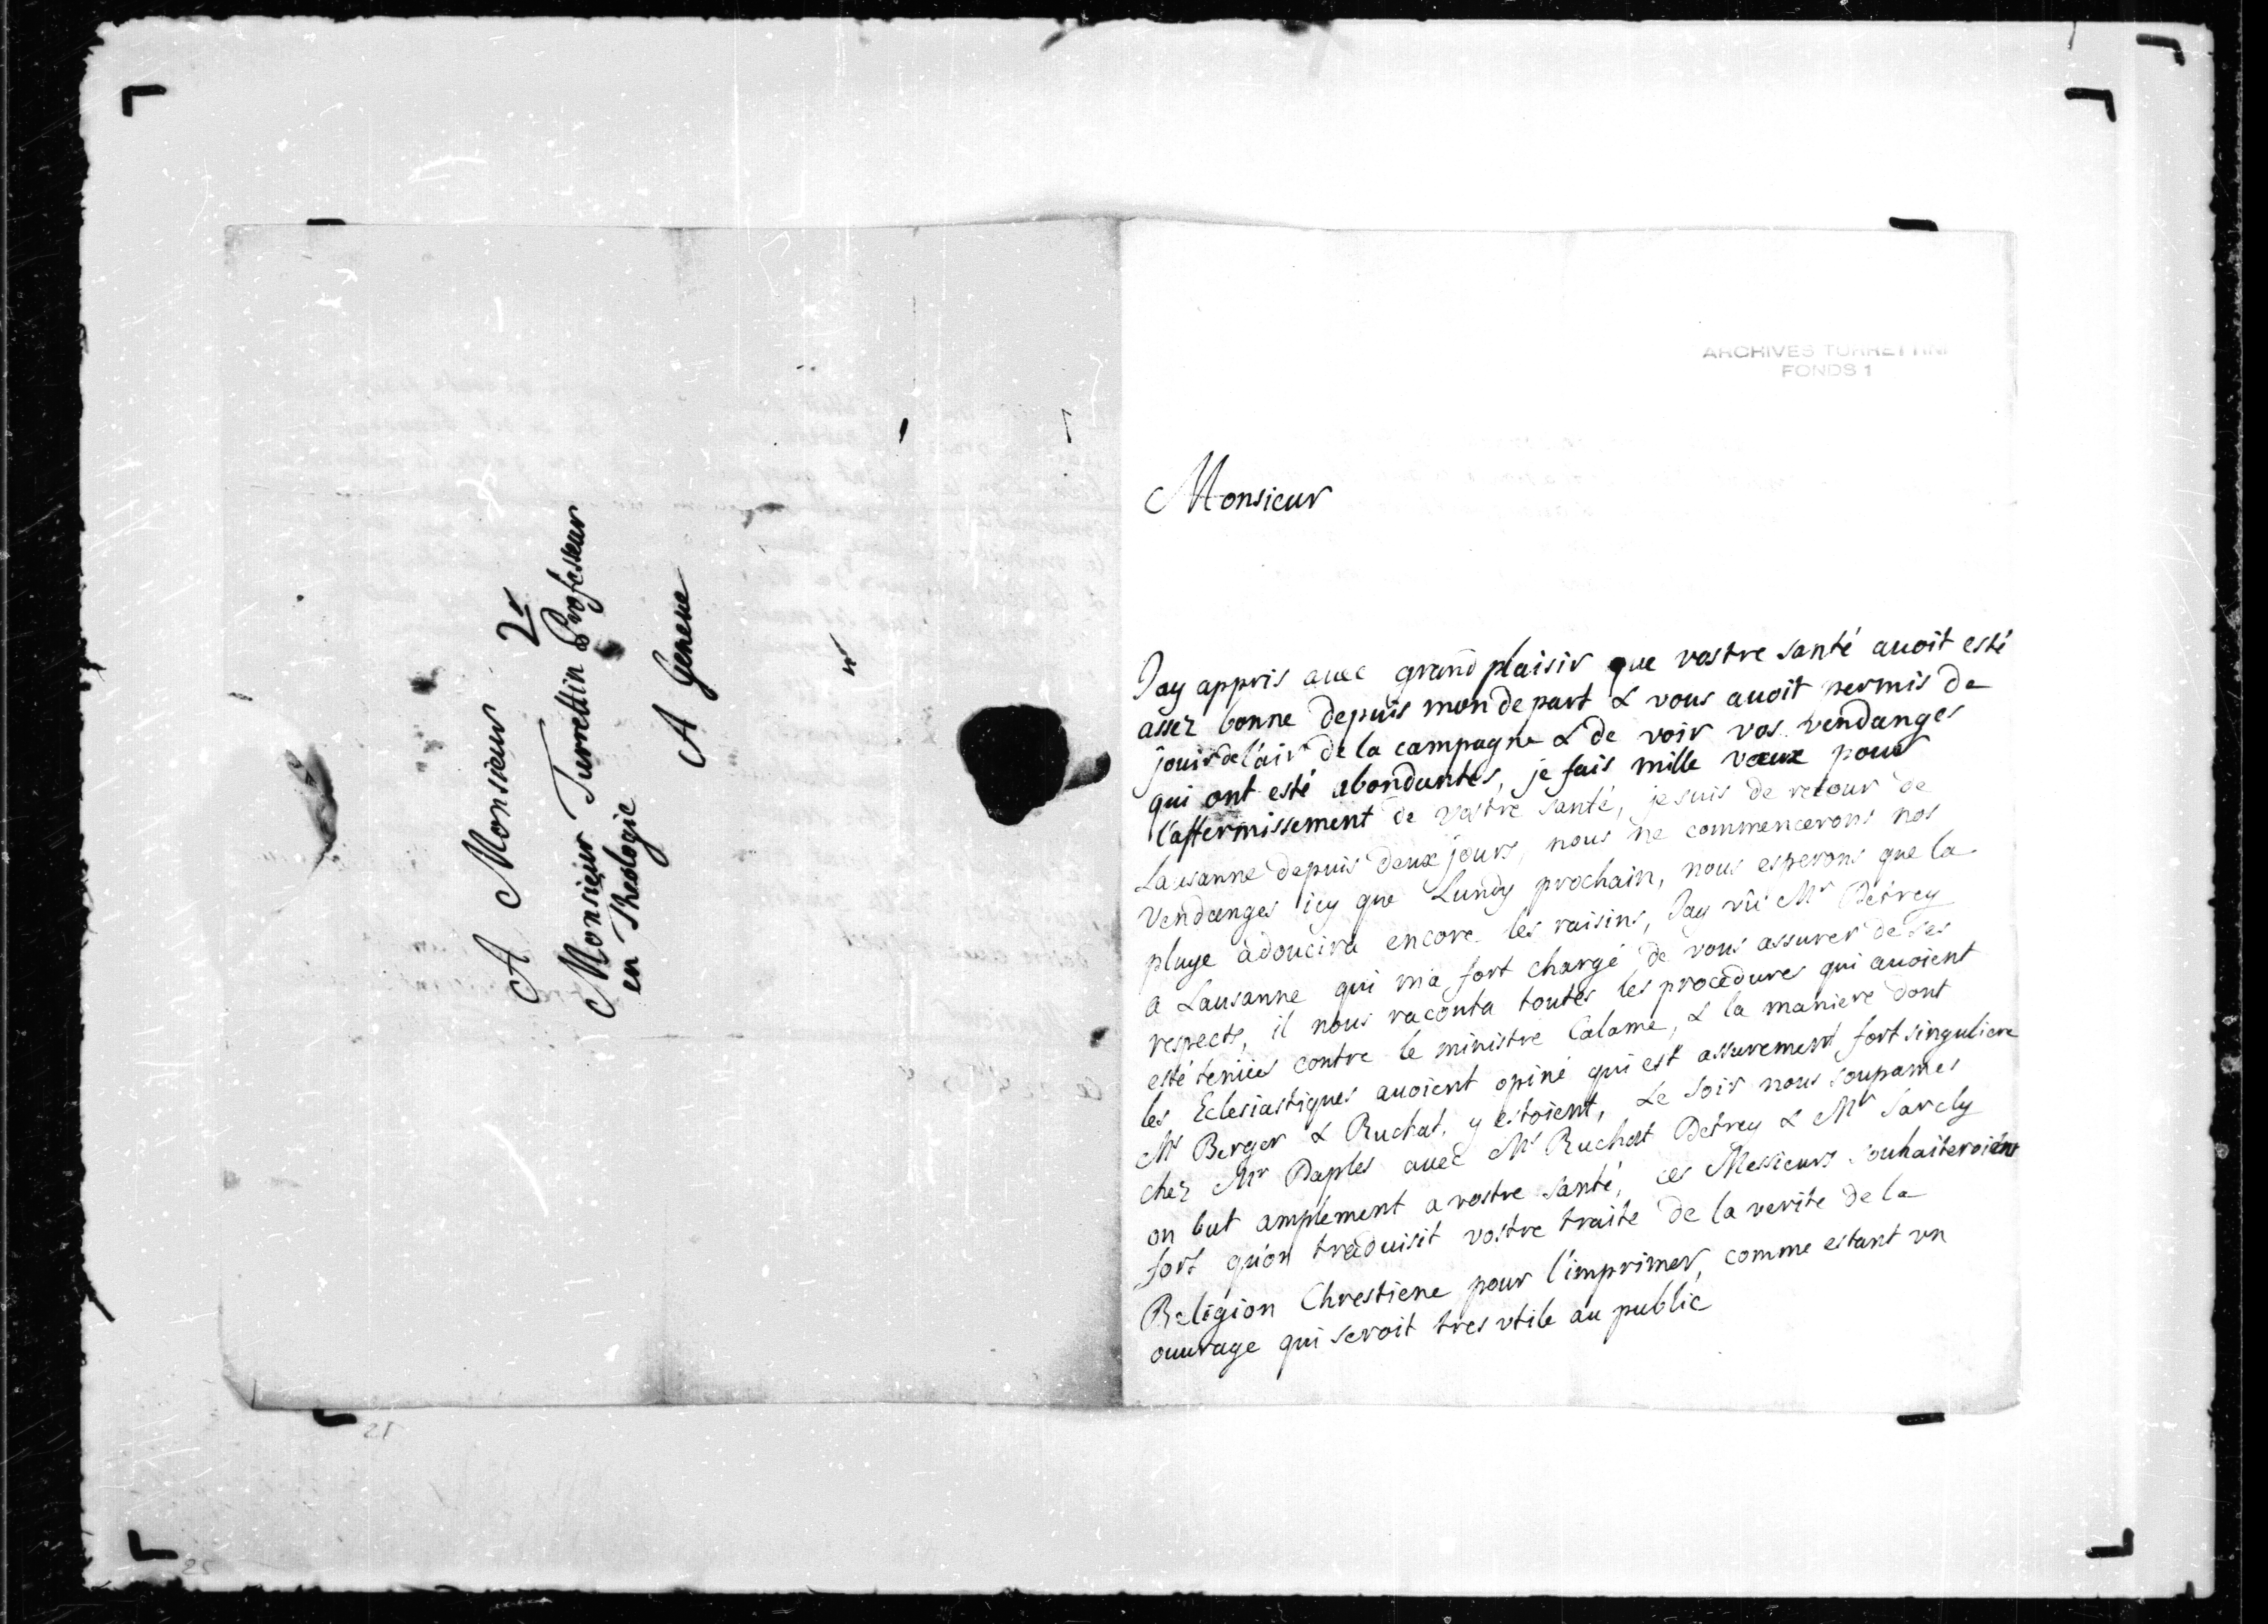 A Monsieur
Monsieur Turrettin Professeur
en Theologie
A Geneve
ARCHIVES TURRETTINI
FONDS 1
Monsieur
Jay appris auec grand plaisir que vostre santé auoit esté
assez bonne depuis mon depart & vous auoit permis de
jouir de l'air de la campagne & de voir vos vendanges
qui ont esté abondantes, je fais mille vœux pour
l'affermissement de vostre santé, je suis de retour de
Lausanne depuis deux jours, nous ne commencerons nos
Vendanges icy que Lundy prochain, nous esperons que la
pluye adoucira encore les raisins, Jay vû Mr Detrey
a Lausanne qui ma fort chargé de vous assurer de ses
respects, il nous raconta toutes les procedures qui auoient
esté tenües contre le ministre Calame, & la maniere dont
les Eclesiastiques auoient opiné qui est assurement fort singuliere
Mrs Berger & Ruchat y estoient, Le soir nous soupames
chez Mr Daples auec Mrs Ruchat Detrey & Mr Sarcly
on but amplement a vostre santé, ces Messieurs souhaiteroient
fort qu'on traduisit vostre traité de la verité de la
Religion Chrestiene pour l'imprimer, comme estant vn
ouurage qui seroit tres vtile au public